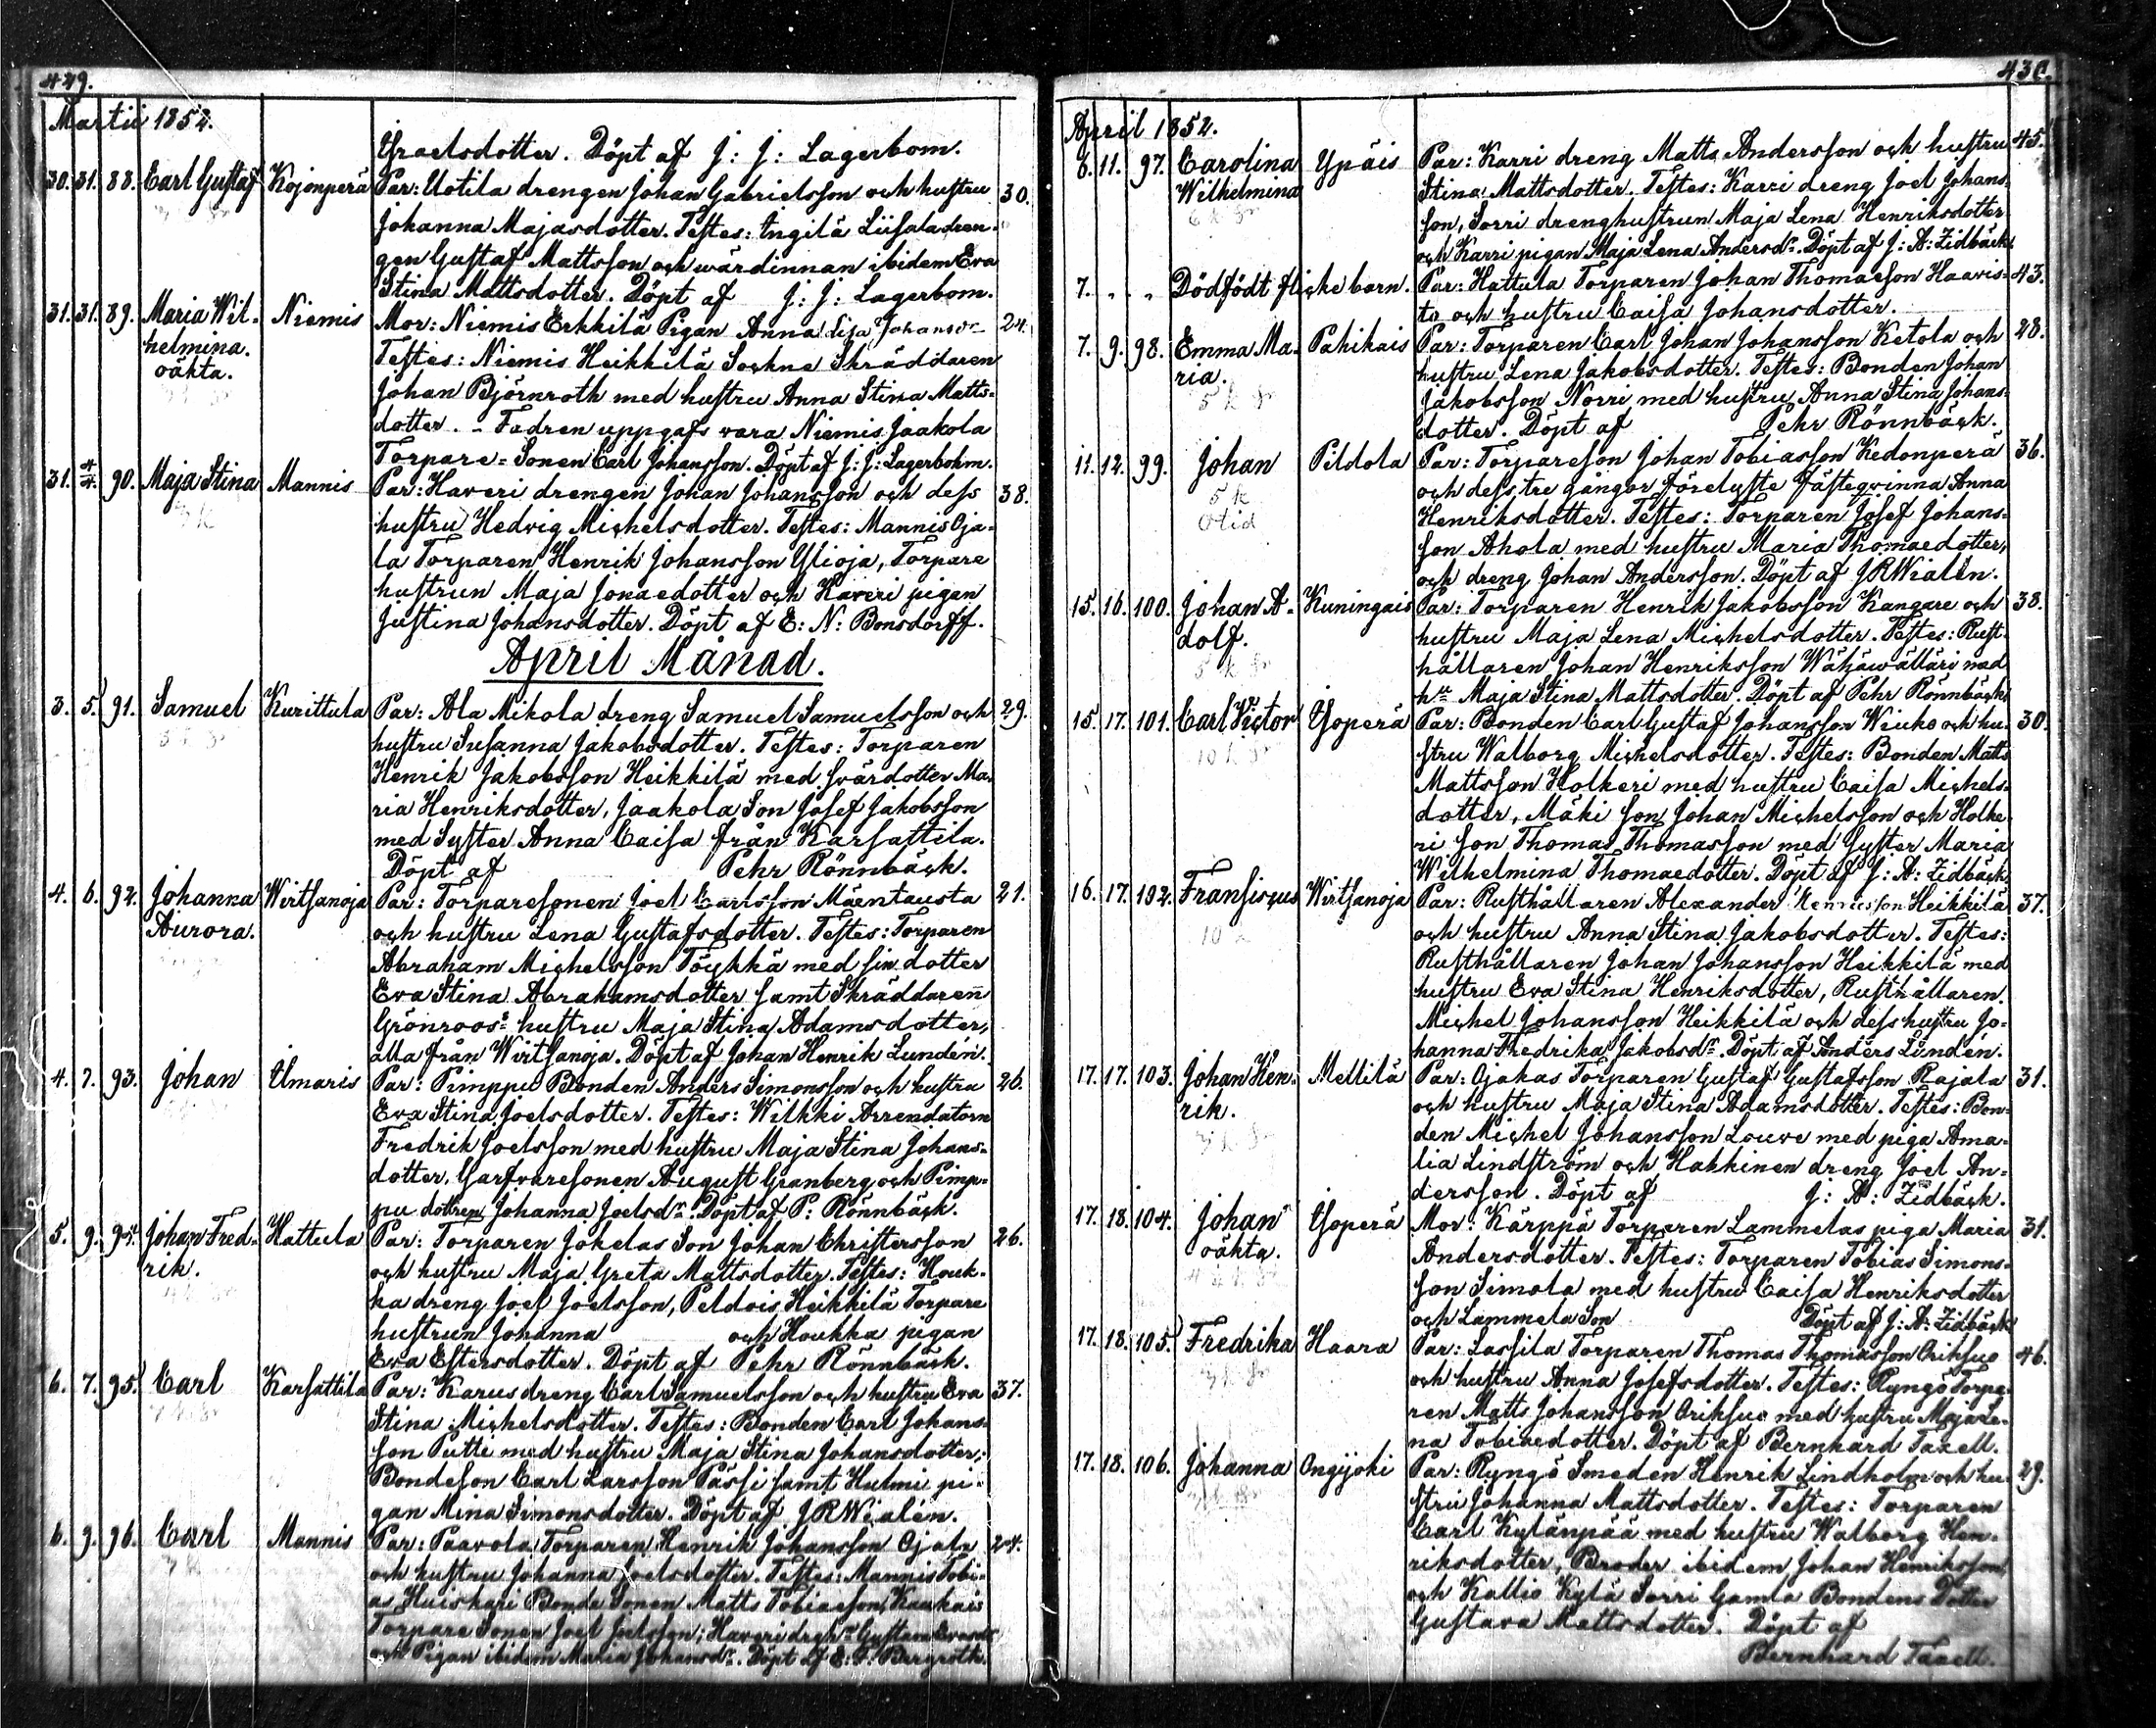 429.
Martii 1852.
Israelsdotter. Döpt af J: J: Lagerbom.
30. 31. 88. Carl Gustaf Kojonperä Par: Uotila drengen Johan Gabrielsson och hustru 30.
Johanna Majasdotter. Testes: Ingilä Liisala dren-
gen Gustaf Mattsson och wärdinnan ibidem Eva
Stina Mattsdotter. Döpt af J: J: Lagerbom.
31. 31. 89. Maria Wil- Niemis Mor: Niemis Erkkilä Pigan Anna Lisa Johansdr 24.
helmina. Testes: Niemis Heikkilä Sockne Skräddaren
oäkta. Johan Björnroth med hustru Anna Stina Matts-
dotter. - Fadren uppgafs vara Niemis Jaakola
Torpare-Sonen Carl Johansson. Döpt af J: J: Lagerbohm.
31. 4/4. 90. Maja Stina Mannis Par: Haveri drengen Johan Johansson och dess 38.
hustru Hedvig Michelsdotter. Testes: Mannis Oja-
la Torparen Henrik Johansson Ylioja, Torpare
hustrun Maja Jonaedotter och Haveri pigan
Justina Johansdotter. Döpt af E: N: Bonsdorff.
April Månad.
3. 5. 91. Samuel Kurittula Par: Ala Mikola dreng Samuel Samuelsson och 29.
hustru Susanna Jakobsdotter. Testes: Torparen
Henrik Jakobsson Heikkilä med svärdotter Ma-
ria Henriksdotter, Jaakola Son Josef Jakobsson
med Syster Anna Caisa från Karsattila.
Döpt af Pehr Rönnbäck.
4. 6. 92. Johanna Wirtsanoja Par: Torparesonen Joel Carlsson Mäentausta 21.
Aurora. och hustru Lena Gustafsdotter. Testes: Torparen
Abraham Michelsson Töykkä med sin dotter
Eva Stina Abrahamsdotter samt Skräddaren
Grönroos's hustru Maja Stina Adamsdotter,
alla från Wirtsanoja. Döpt af Johan Henrik Lundén.
4. 7. 93. Johan Ilmaris Par: Pimppu Bonden Anders Simonsson och hustru 26.
Eva Stina Joelsdotter. Testes: Wilkki Arrendatorn
Fredrik Joelsson med hustru Maja Stina Johans-
dotter, Garfvaresonen August Granberg och Pimp-
pu dottren Johanna Joelsdr. Döpt af P: Rönnbäck.
5. 9. 94. Johan Fred- Hattula Par: Torparen Jokelas Son Johan Christersson 26.
rik. och hustru Maja Greta Mattsdotter. Testes: Houk-
ka dreng Joel Joelsson, Peldois Heikkilä Torpare
hustrun Johanna och Houkka pigan
Eva Estersdotter. Döpt af Pehr Rönnbäck.
6. 7. 95. Carl Karsattila Par: Karus dreng Carl Samuelsson och hustru Eva 37.
Stina Michelsdotter. Testes: Bonden Carl Johans-
son Putte med hustru Maja Stina Johansdotter;
Bondeson Carl Larsson Pässi samt Hulmi pi-
gan Mina Simonsdotter. Döpt af JRWialén.
6. 9. 96. Carl Mannis Par: Paavola Torparen Henrik Johansson Ojala 24.
och hustru Johanna Joelsdotter. Testes: Mannis Tobi-
as Huiskari Bonde Sonen Matts Tobiasson, Kaukais
Torpare Sonen Joel Joelsson; Haveri
och Pigan ibidem Maria Johansdr. Döpt af Bergroth.
430.
April 1852.
8. 11. 97. Carolina Ypäis Par: Karri dreng Matts Andersson och hustru 45.
Wilhelmina Stina Mattsdotter. Testes: Karri dreng Joel Johans-
son, Sorri drenghustrun Maja Lena Henriksdotter
och Karri pigan Maja Lena Andersdr. Döpt af J: A: Zidbäck.
7. " " Dödfödt flickebarn. Par: Hattula Torparen Johan Thomasson Haavis- 43.
to och hustru Caisa Johansdotter.
7. 9. 98. Emma Ma- Pahikais Par: Torparen Carl Johan Johansson Ketola och 28.
ria. hustru Lena Jakobsdotter. Testes: Bonden Johan
5 k Jakobsson Norri med hustru Anna Stina Johans-
dotter. Döpt af Pehr Rönnbäck.
11. 12. 99. Johan Pildola Par: Torpareson Johan Tobiasson Kedonperä 36.
5 k och dess tre gångor förelyste fästeqvinna Anna
Otid Henriksdotter. Testes: Torparen Josef Johans-
son Ahola med hustru Maria Thomaedotter,
och dreng Johan Andersson. Döpt af JRWialén.
15. 16. 100. Johan A- Kuningais Par: Torparen Henrik Jakobsson Kangare och 38.
dolf. hustru Maja Lena Michelsdotter. Testes: Rust-
5 k hållaren Johan Henriksson Wähäwälläri med
htr Maja Stina Mattsdotter. Döpt af Pehr Rönnbäck.
15. 17. 101. Carl Victor Isoperä Par: Bonden Carl Gustaf Johansson Wiuko och hu- 30.
10 k stru Walborg Michelsdotter. Testes: Bonden Matts
Mattsson Holkeri med hustru Caisa Michels-
dotter, Mäki Son Johan Michelsson och Holke-
ri Son Thomas Thomasson med Syster Maria
Wilhelmina Thomaedotter. Döpt af J: A: Zidbäck.
16. 17. 102. Fransiscus Wirtsanoja Par: Rusthållaren Alexander Henriksson Heikkilä 37.
10 och hustru Anna Stina Jakobsdotter. Testes:
Rusthållaren Johan Johansson Heikkilä med
hustru Eva Stina Henriksdotter, Rusthållaren
Michel Johansson Heikkilä och dess hustru Jo-
hanna Fredrika Jakobsdr. Döpt af Anders Lindén.
17. 17. 103. Johan Hen- Mellilä Par: Ojakas Torparen Gustaf Gustafsson Rajala 31.
rik. och hustru Maja Stina Adamsdotter. Testes: Bon-
den Michel Johansson Louve med piga Ama-
lia Lindström och Hakkinen dreng Joel An-
dersson. Döpt af J: A: Zidbäck.
17. 18. 104. Johan Isoperä Mor: Kärppä Torparen Lammelas piga Maria 31.
oäkta. Andersdotter. Testes: Torparen Tobias Simons-
son Simola med hustru Caisa Henriksdotter
och Lammela Son Döpt af J: A: Zidbäck
17. 18. 105. Fredrika Haara Par: Lassila Torparen Thomas Thomasson Oriksuo 46.
och hustru Anna Josefsdotter. Testes: Ryngö Torpa-
ren Matts Johansson Oriksuo med hustru Maja Le-
na Tobiaedotter. Döpt af Bernhard Taxell.
17. 18. 106. Johanna Ongijoki Par: Ryngö Smeden Henrik Lindholm och hu- 29.
stru Johanna Mattsdotter. Testes: Torparen
Carl Kylänpää med hustru Walborg Hen-
riksdotter, Broder ibidem Johan Henriksson
och Kallio Kylä Sorri Gamla Bondens Dotter
Gustava Mattsdotter. Döpt af
Bernhard Taxell.